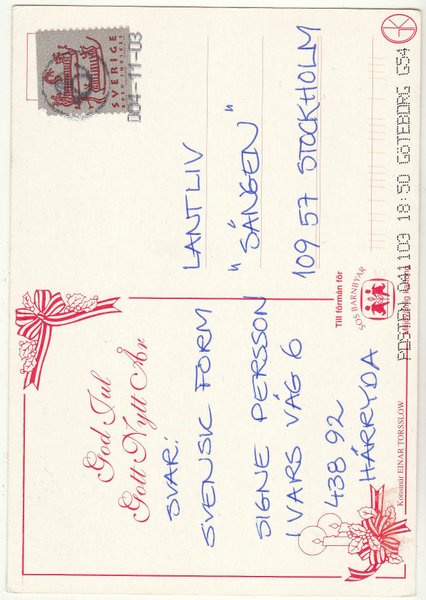 God Jul
Gott Nytt År
SVAR:
SVENSK FORM
SIGNE PERSSON
IVARS VÄG 6
438 92
HÄRRYDA
Konstnär EINAR TORSSLOW
Till förmån för
SOS BARNBYAR
SVERIGE
BREV INRIKES
004-11-03
LANTLIV
"SÄNGEN"
109 57 STOCKHOLM
POSTEN 041103 18:50 GÖTEBORG G54